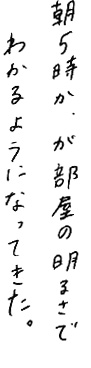 朝5時か、が部屋の明るさで
わかるようになってきた。